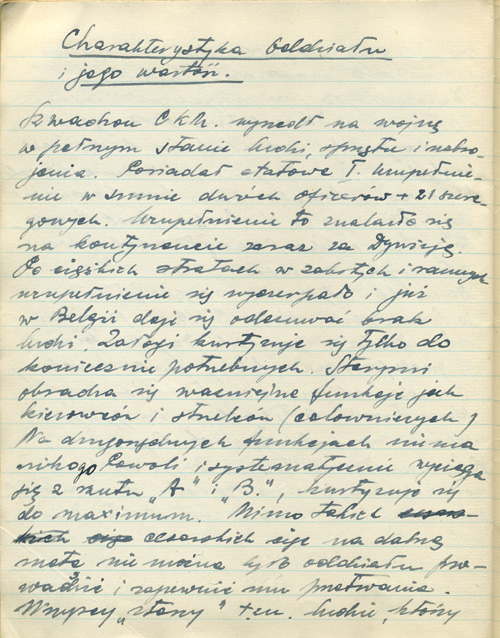 Charakterystyka Oddziału
i jego wartość.
Szwadron C.K.M. wyszedł na wojnę
w pełnym stanie ludzi, sprzętu i uzbro-
jenia. Posiadał etatowe I. Uzupełnie-
nie w sumie dwóch oficerów + 21 szere-
gowych. Uzupełnienie to znalazło się
na kontynencie zaraz za Dywizją.
Po ciężkich stratach w zabitych i rannych
uzupełnienie się wyczerpało i już
w Belgii daje się odczuwać brak
ludzi. Załogi kurtyzuje się tylko do
koniecznie potrzebnych. Starymi
obsadza się ważniejsze funkcje jak
kierowców i strzelców (celowniczych)
Na drugorzędnych funkcjach niema
nikogo. Powoli i systematycznie wyciąga
się z rzutu „A" i „B.", kurtyzuje się
do maximum. Mimo takich
cięć na dalszą
metę nie można było oddziału pro-
wadzić i zapewnić mu przetrwania.
Wszyscy „starzy" t.zn. ludzie, którzy